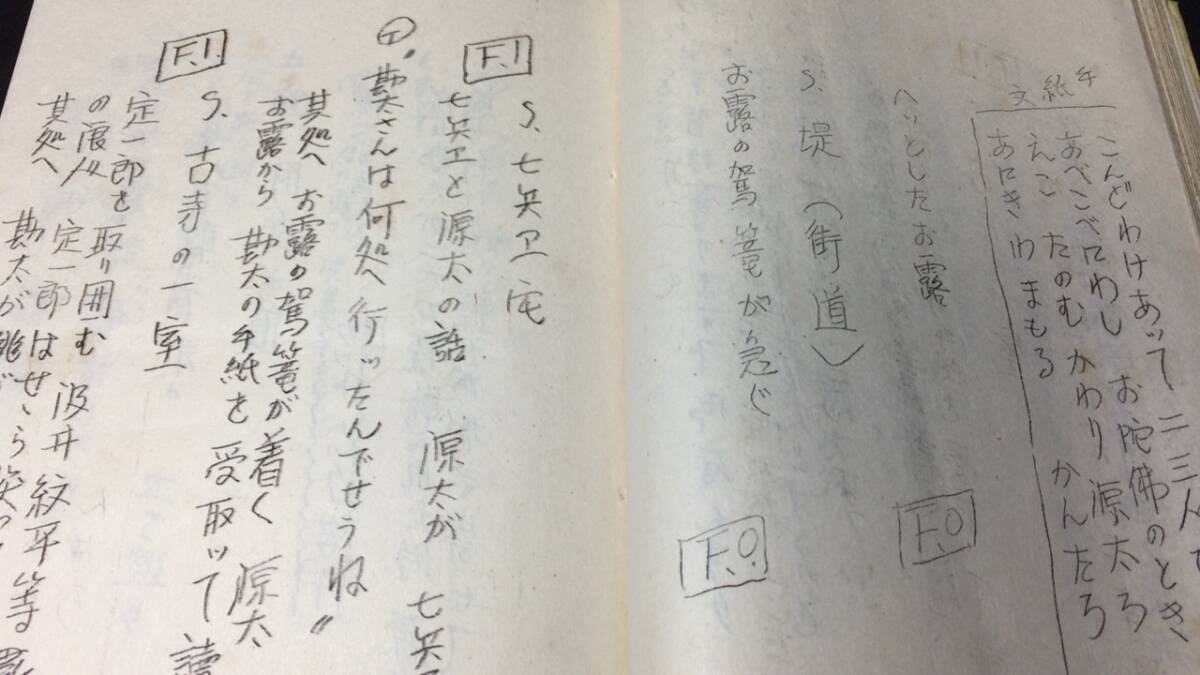 手紙文
こんどわけあッて 二三人
あべこべにわし お陀佛のとき
えこ たのむ かわり 源太ろ
あにき わ まもる かんたろ
ハッとしたお露
F.O
S、堤（街道）
お露の駕篭が急ぐ
F.O
F.I
S、七兵ヱ宅
七兵ヱと源太の話 源太が 七兵
勘さんは何処へ行ッたんでせうね〃
其処へ お露の駕篭が着く 源太
お露から 勘太の手紙を 受取ッて 讀
F.I
S、古寺の一室
定一郎を取り囲む 汲井 紋平等
の 定一郎はせゝら笑
其処へ 勘太が